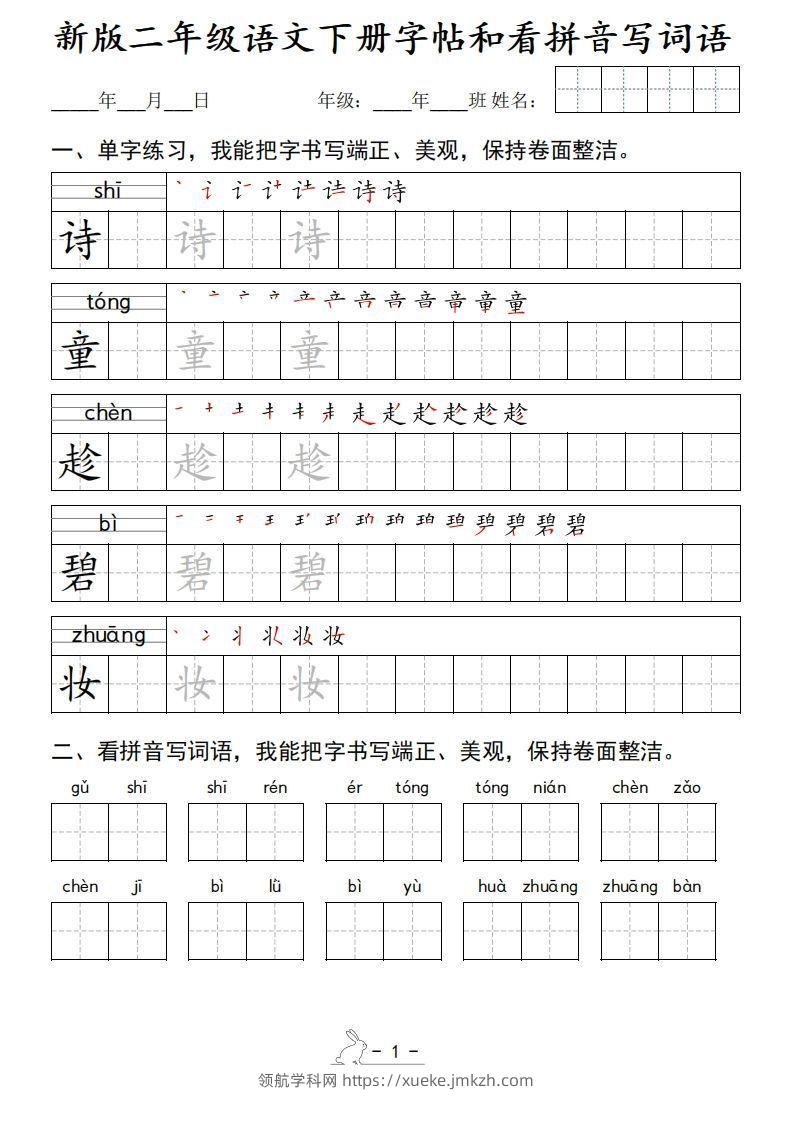 新版二年级语文下册字帖和看拼音写词语
_____年___月___日 年级：____年____班 姓名：
一、单字练习，我能把字书写端正、美观，保持卷面整洁。
shī
诗 诗 诗
tóng
童 童 童
chèn
趁 趁 趁
bì
碧 碧 碧
zhuāng
妆 妆 妆
二、看拼音写词语，我能把字书写端正、美观，保持卷面整洁。
gǔ shī shī rén ér tóng tóng nián chèn zǎo
chèn jī bì lǜ bì yù huà zhuāng zhuāng bàn
- 1 -
领航学科网 https://xueke.jmkzh.com